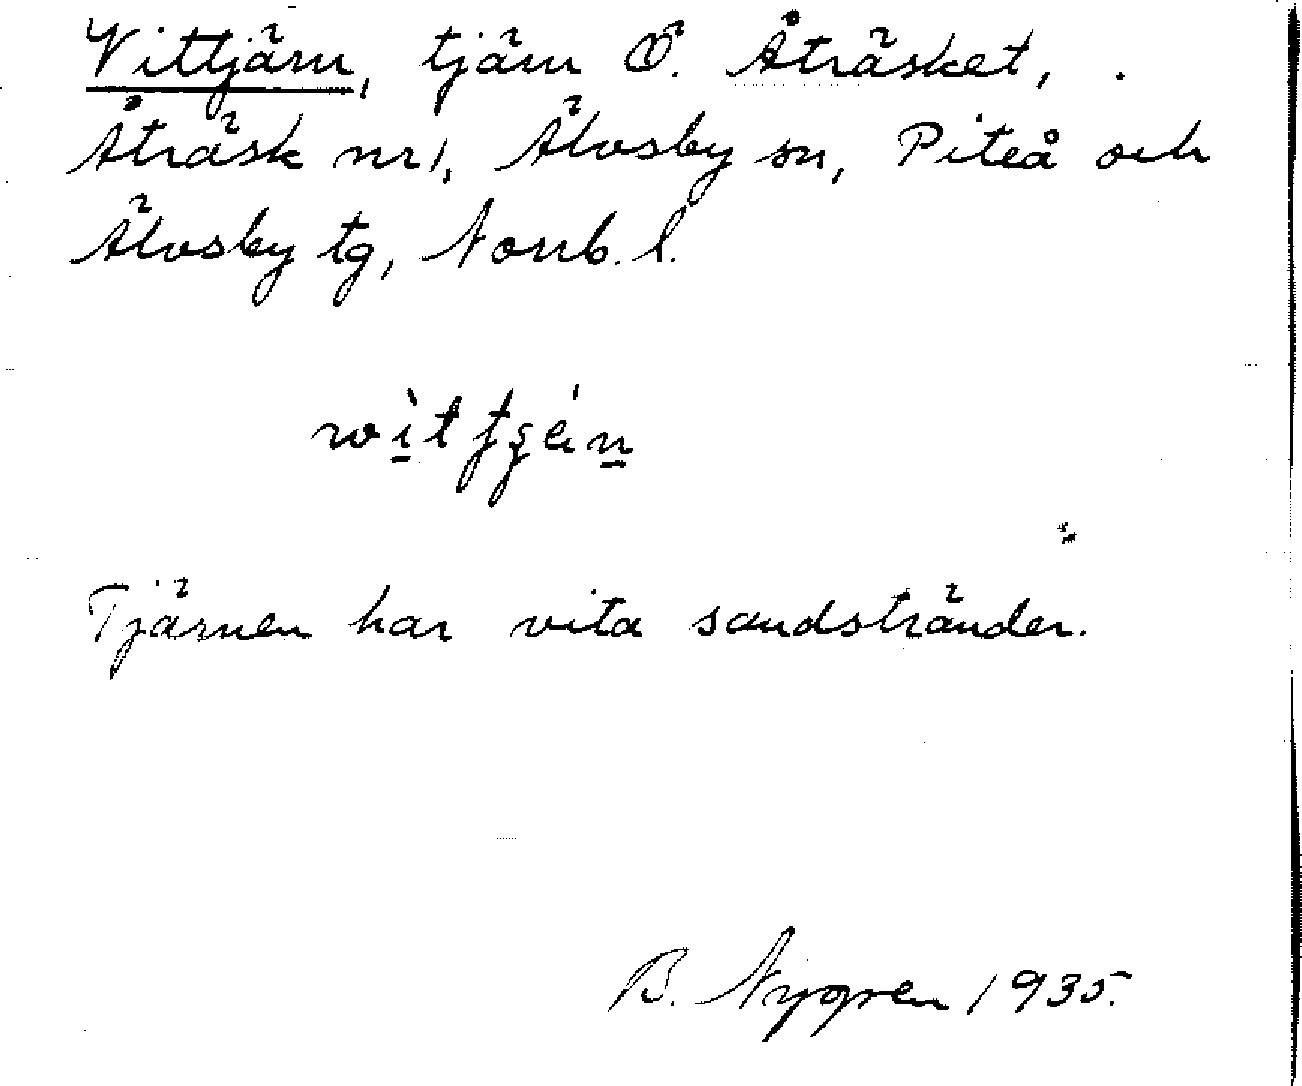 Vittjärn, tjärn Ö. Åträsket,
Åträsk nr 1, Älvsby sn, Piteå och
Älvsby tg, Norrb. l.
Tjärnen har vita sandstränder.
B. Nygren 1935.